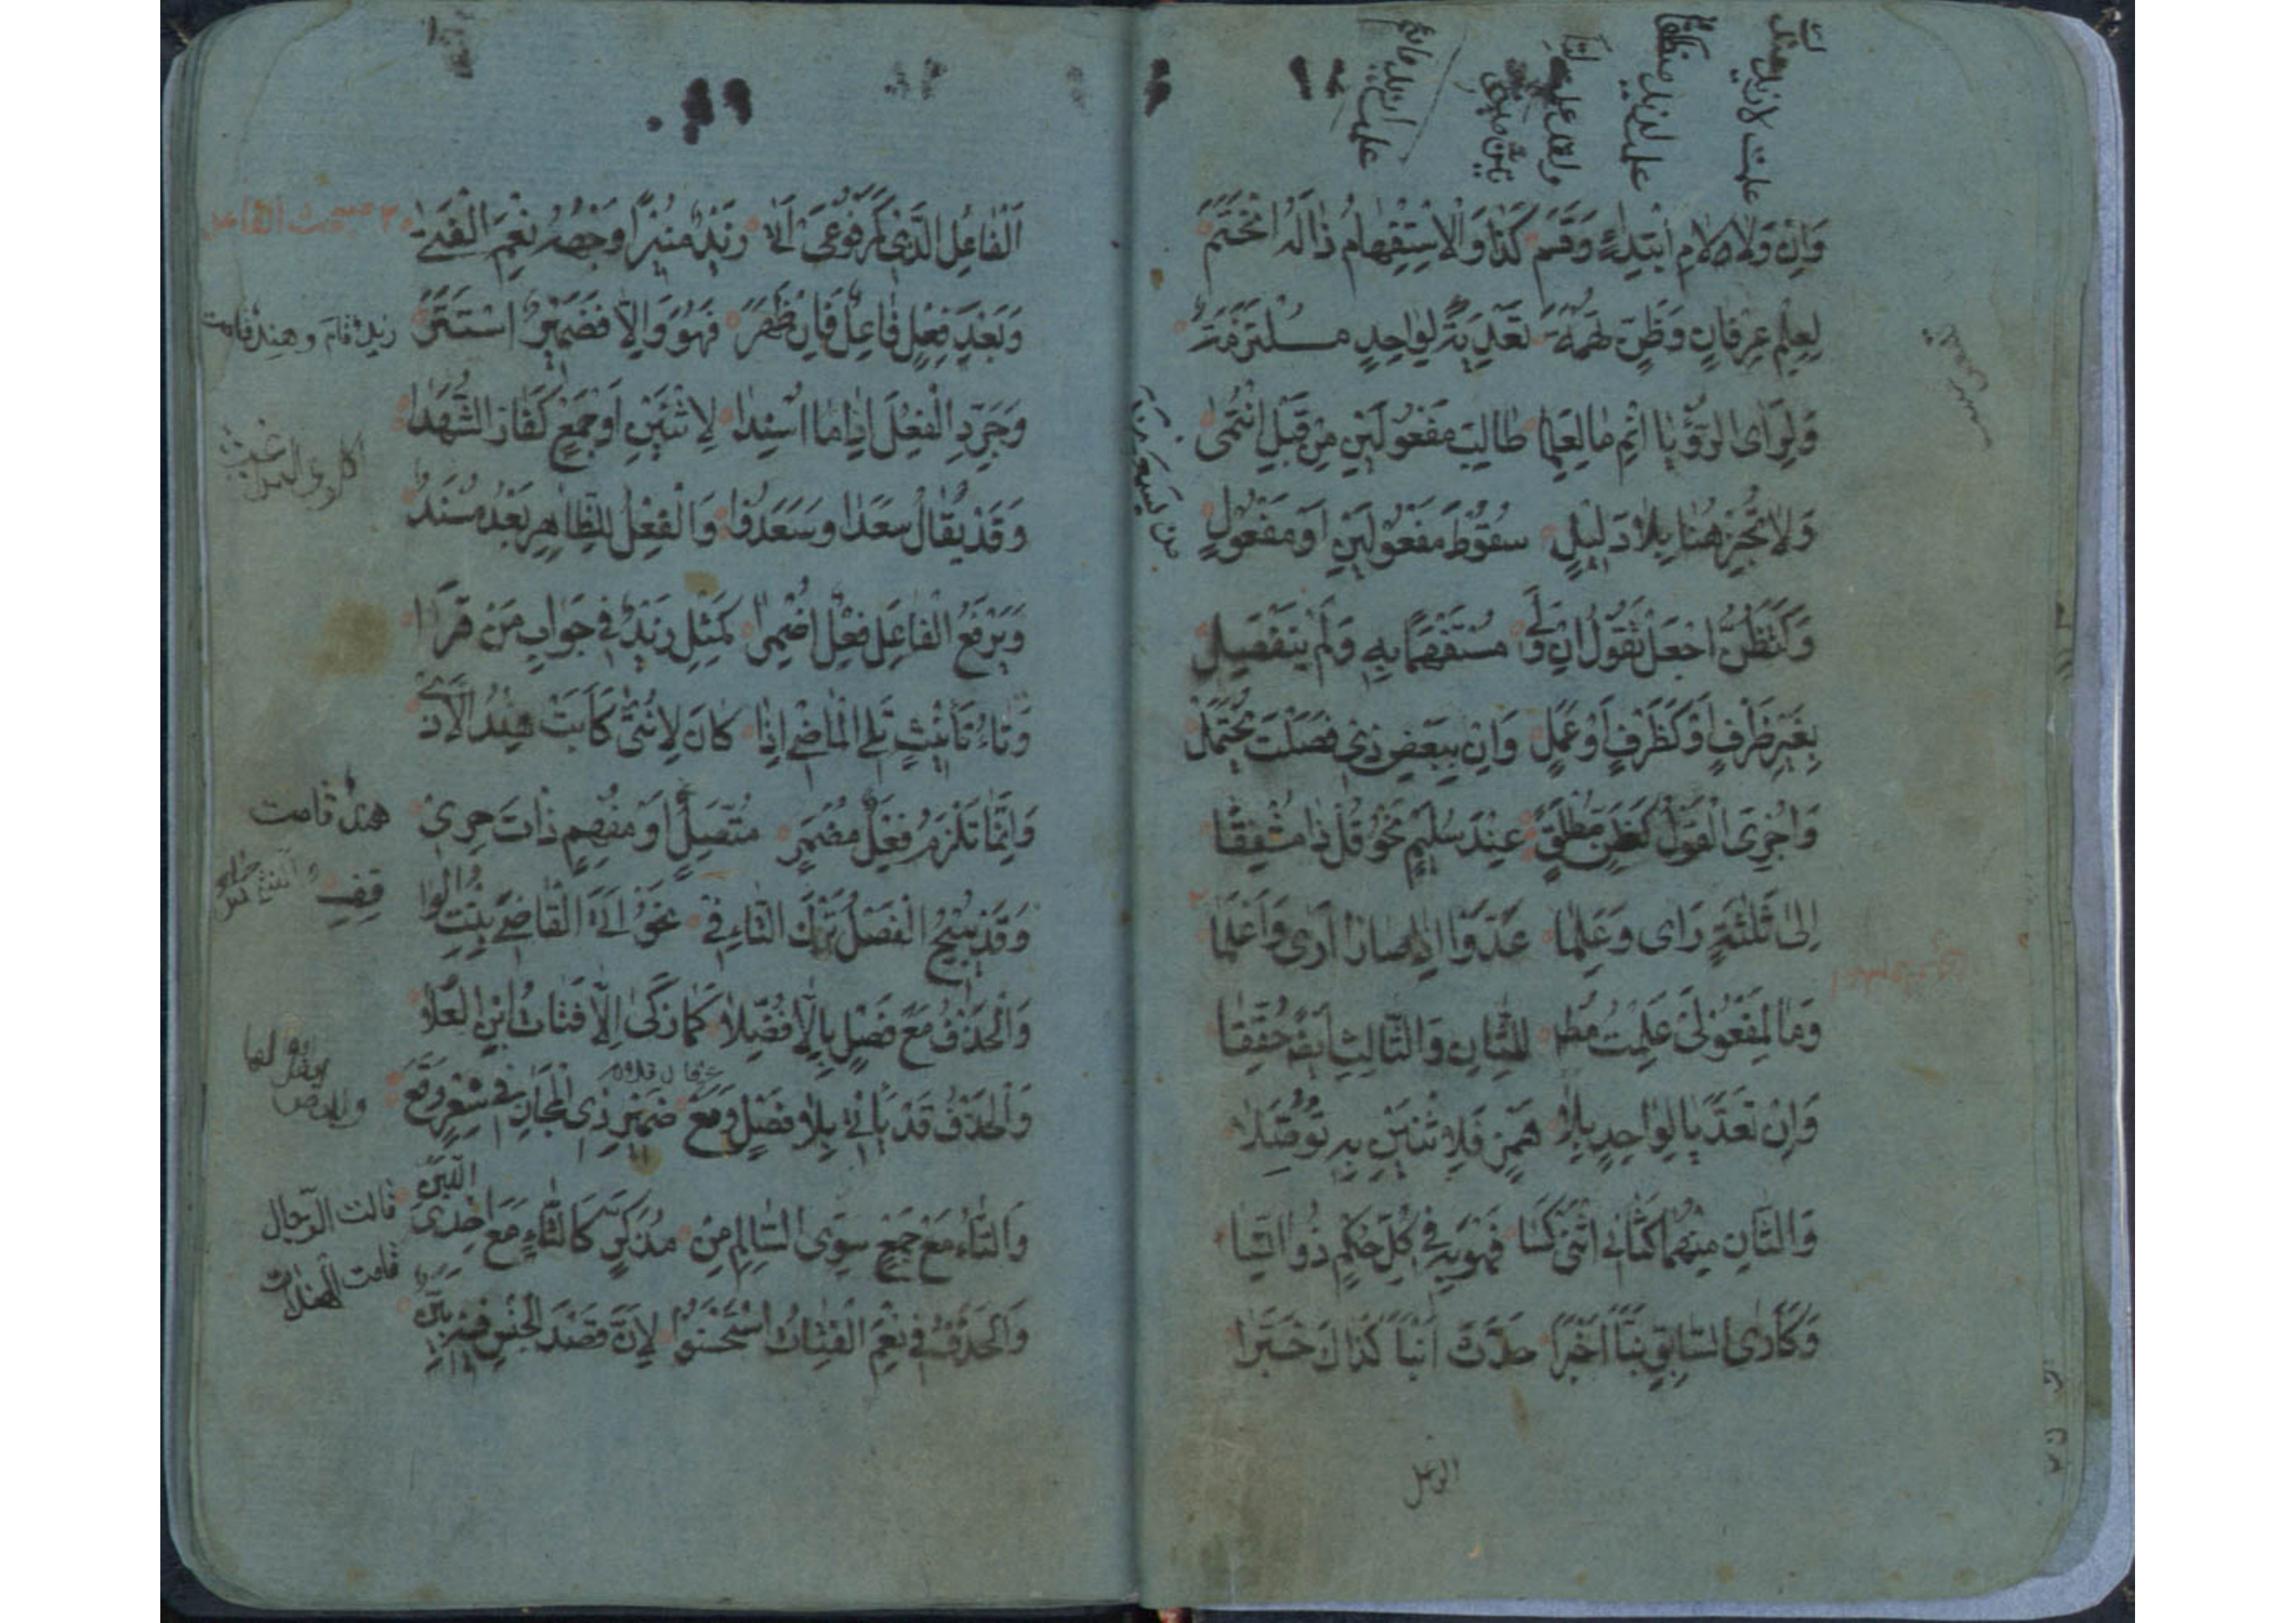 علمت لا زيد
علمت لزيد منطلق
علمت ازيد قائم
وَاِنْ وَلَا لَامِ ابْتِدَاءٍ وَقَسَمْ كَذَا وَالْاِسْتِفْهَامُ ذَا لَهُ انْحَتَمْ
لِعِلْمِ عِرْفَانٍ وَظَنٍّ تُهَمَهْ تَعْدِيَةٌ لِوَاحِدٍ مُلْتَزَمَهْ
وَلِرَاَى الرُّؤْيَا انْمِ مَا لِعَلِمَا طَالِبَ مَفْعُولَيْنِ مِنْ قَبْلُ انْتَمَى
وَلَا تُجِزْ هُنَا بِلَا دَلِيْلٍ سُقُوْطَ مَفْعُوْلَيْنِ اَوْ مَفْعُوْلٍ
وَكَتَظُنُّ اجْعَلْ تَقُوْلُ اِنْ وَلِي مُسْتَفْهَمًا بِهِ وَلَمْ يَنْفَصِلِ
بِغَيْرِ ظَرْفٍ اَوْ كَظَرْفٍ اَوْ عَمَلٍ وَاِنْ بِبَعْضِ ذِي فَصَلْتَ يُحْتَمَلْ
وَاُجْرِىَ الْقَوْلُ كَظَنٍّ مُطْلَقًا عِنْدَ سُلَيْمٍ نَحْوُ قُلْ ذَا مُشْفِقًا
اِلىٰ ثَلٰثَةٍ رَاَى وَعَلِمَا عَدَّوْا اِذَا صَارَا اَرَى وَاَعْلَمَا
وَمَا لِمَفْعُوْلَىْ عَلِمْتُ مُطْلَقًا لِلثَّانِ وَالثَّالِثِ اَيْضًا حُقِّقَا
وَاِنْ تَعَدَّيَا لِوَاحِدٍ بِلَا هَمْزٍ فَلِاثْنَيْنِ بِهِ تَوَصَّلَا
وَالثَّانِ مِنْهُمَا كَثَانِي اثْنَىْ كَسَا فَهُوَ بِهِ فِي كُلِّ حُكْمٍ ذُو ائْتِسَا
وَكَاَرَى السَّابِقِ نَبَّأَ اَخْبَرَا حَدَّثَ اَنْبَأَ كَذَاكَ خَبَّرَا
الفاعل
اَلْفَاعِلُ الَّذِي كَمَرْفُوْعَىْ اَتَى زَيْدٌ مُنِيْرًا وَجْهُهُ نِعْمَ الْفَتَى
وَبَعْدَ فِعْلٍ فَاعِلٌ فَاِنْ ظَهَرَ فَهُوَ وَاِلَّا فَضَمِيْرٌ اسْتَتَرَ
زيد قام وهند قامت
وَجَرِّدِ الْفِعْلَ اِذَا مَا اُسْنِدَا لِاثْنَيْنِ اَوْ جَمْعٍ كَفَازَ الشُّهَدَا
وَقَدْ يُقَالُ سَعِدَا وَسَعِدُوْا وَالْفِعْلُ لِلظَّاهِرِ بَعْدُ مُسْنَدُ
وَيَرْفَعُ الْفَاعِلَ فِعْلٌ اُضْمِرَا كَمِثْلِ زَيْدٌ فِي جَوَابِ مَنْ قَرَا
وَتَاءُ تَأْنِيْثٍ تَلِي الْمَاضِي اِذَا كَانَ لِاُنْثَى كَاَبَتْ هِنْدُ الْاَذَى
وَاِنَّمَا تَلْزَمُ فِعْلَ مُضْمَرٍ مُتَّصِلٍ اَوْ مُفْهِمٍ ذَاتَ حِرِ
هند قامت
وَقَدْ يُبِيْحُ الْفَصْلُ تَرْكَ التَّاءِ فِي نَحْوِ اَتَى الْقَاضِيَ بِنْتُ الْوَاقِفِ
وَالْحَذْفُ مَعْ فَصْلٍ بِاِلَّا فُضِّلَا كَمَا زَكَى اِلَّا فَتَاةُ ابْنِ الْعَلَا
وَالْحَذْفُ قَدْ يَأْتِي بِلَا فَصْلٍ وَمَعْ ضَمِيْرِ ذِى الْمَجَازِ فِي شِعْرٍ وَقَعْ
وَالتَّاءُ مَعْ جَمْعٍ سِوَى السَّالِمِ مِنْ مُذَكَّرٍ كَالتَّاءِ مَعْ اِحْدَى اللَّبِنْ
قالت الرجال
قامت الهندات
وَالْحَذْفَ فِي نِعْمَ الْفَتَاةُ اسْتَحْسَنُوْا لِاَنَّ قَصْدَ الْجِنْسِ فِيْهِ بَيِّنُ